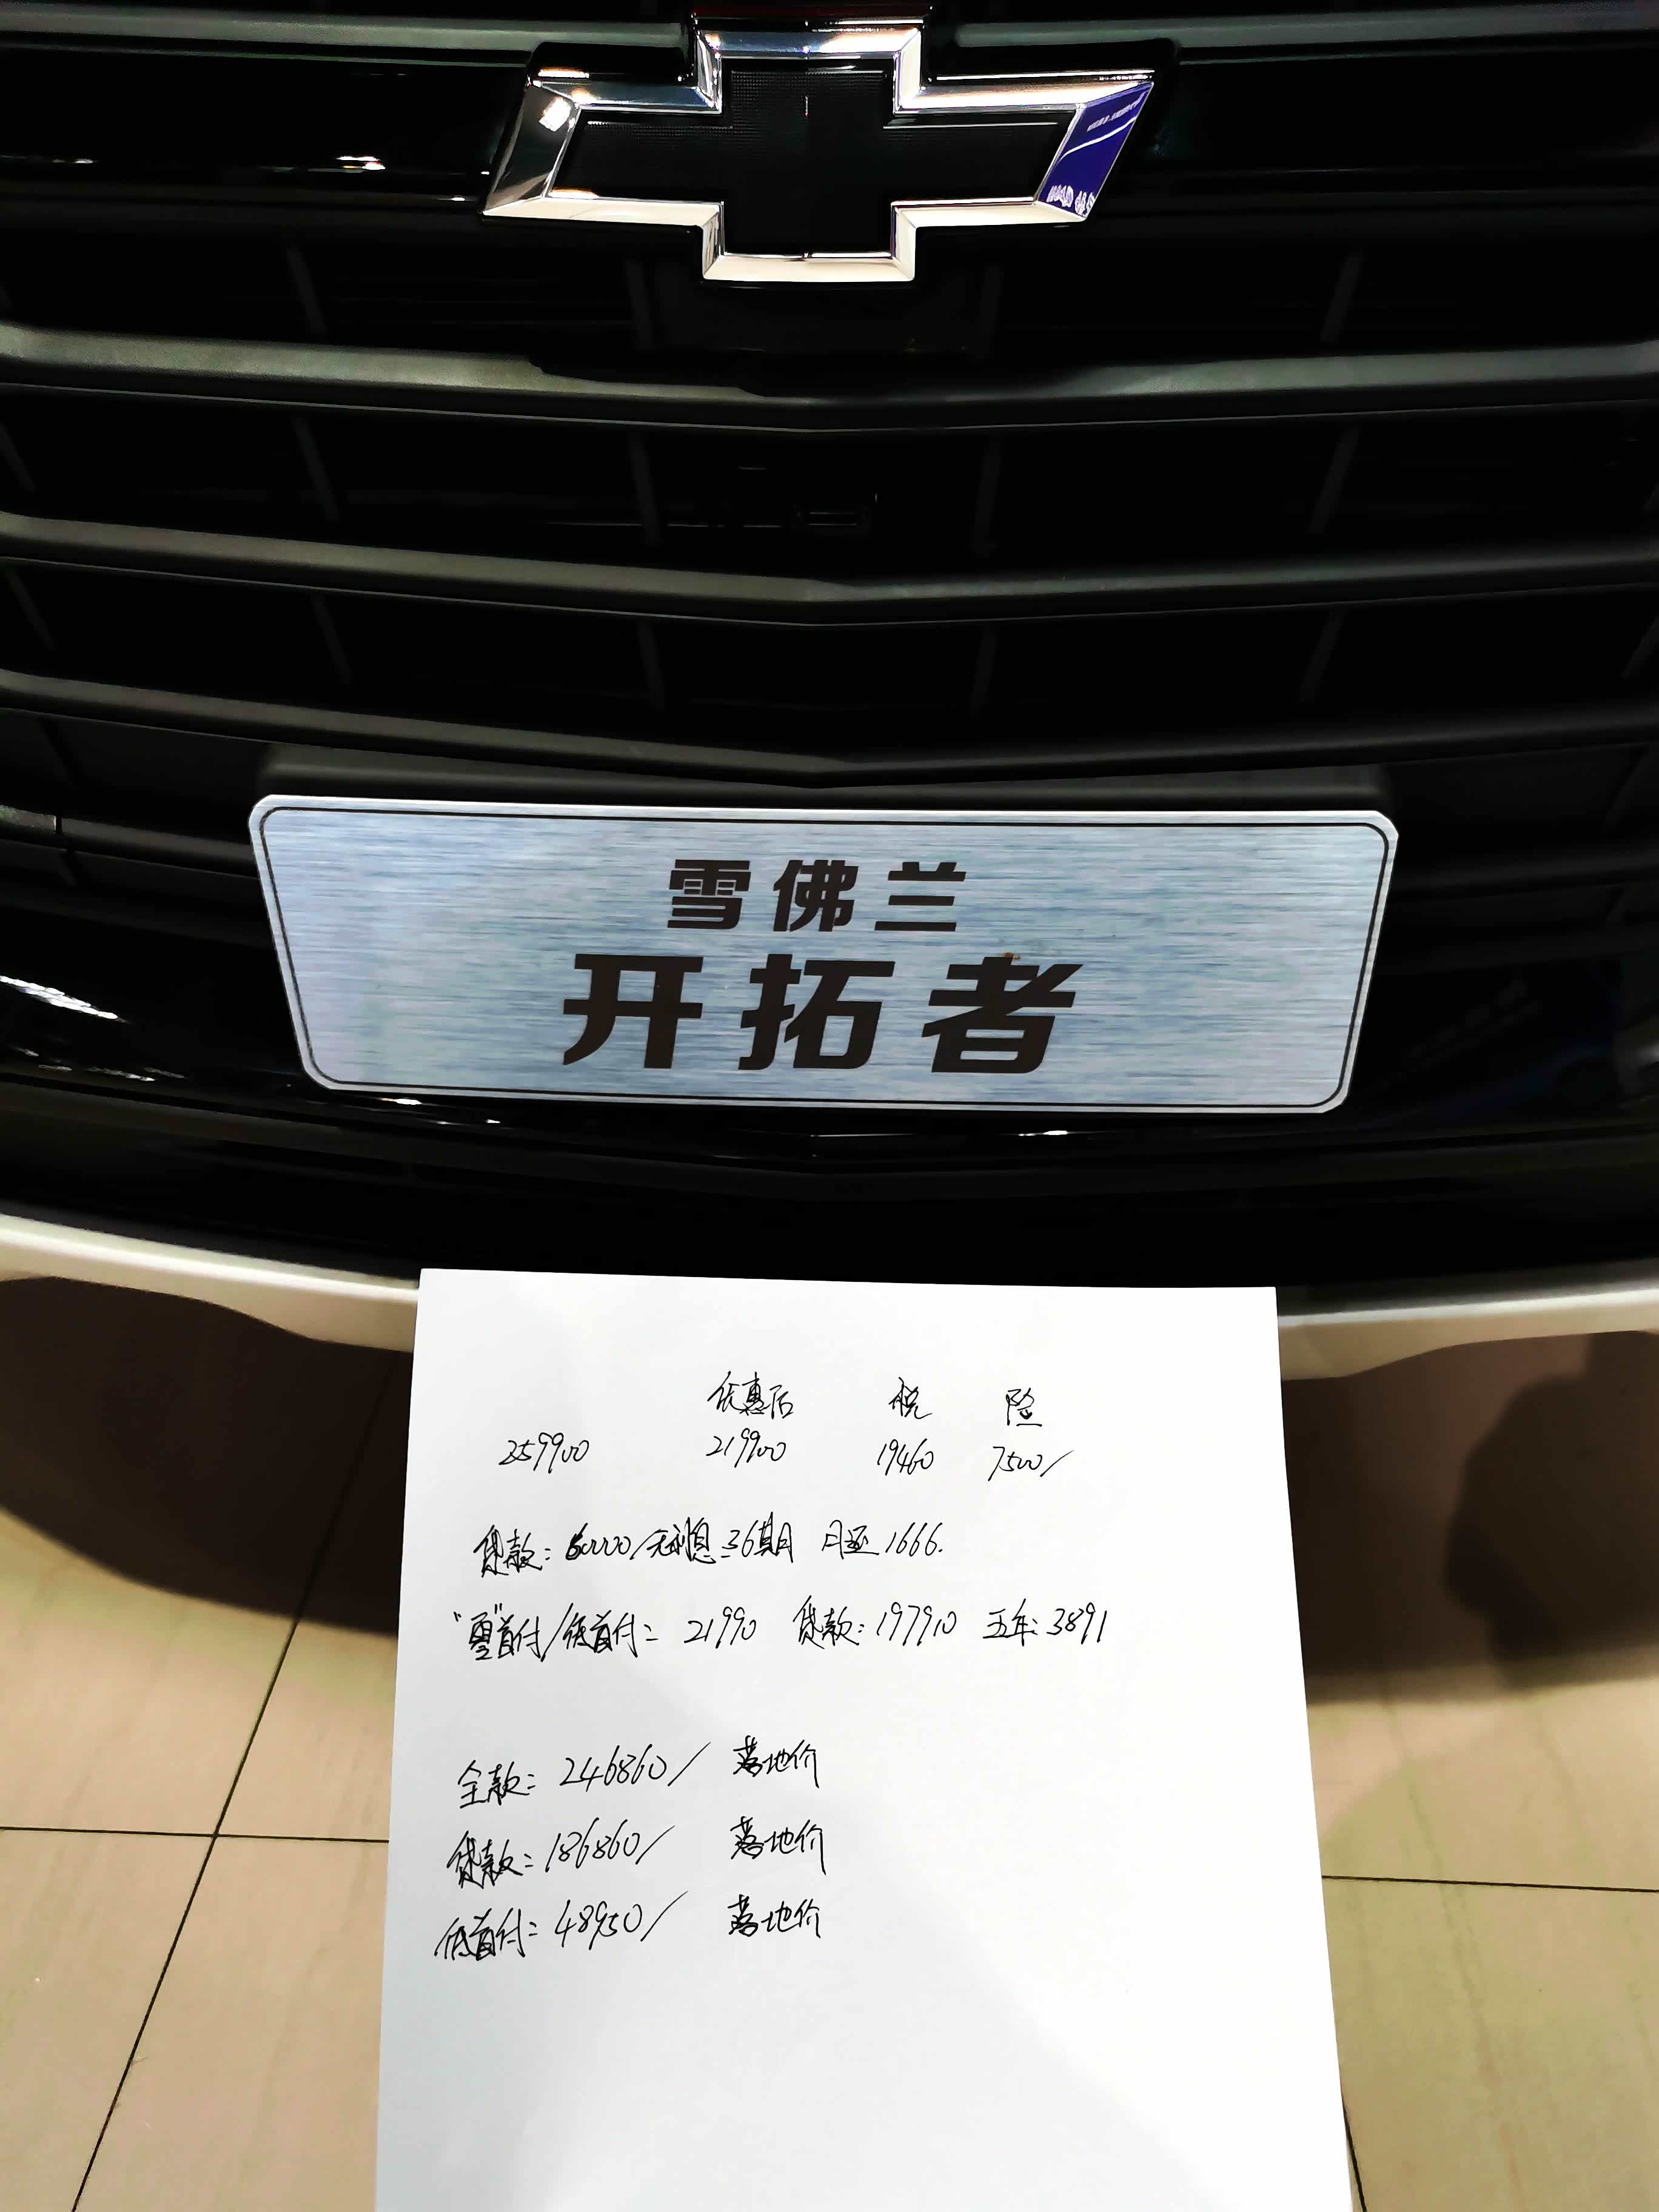 雪佛兰
开拓者
优惠后 税 险
259900 219900 19460 7500/
贷款: 60000/无利息 36期 月还 1666.
"零"首付/低首付: 21990 贷款: 197910 五年: 3891
全款: 246860/ 落地价
贷款: 186860/ 落地价
低首付: 48950/ 落地价